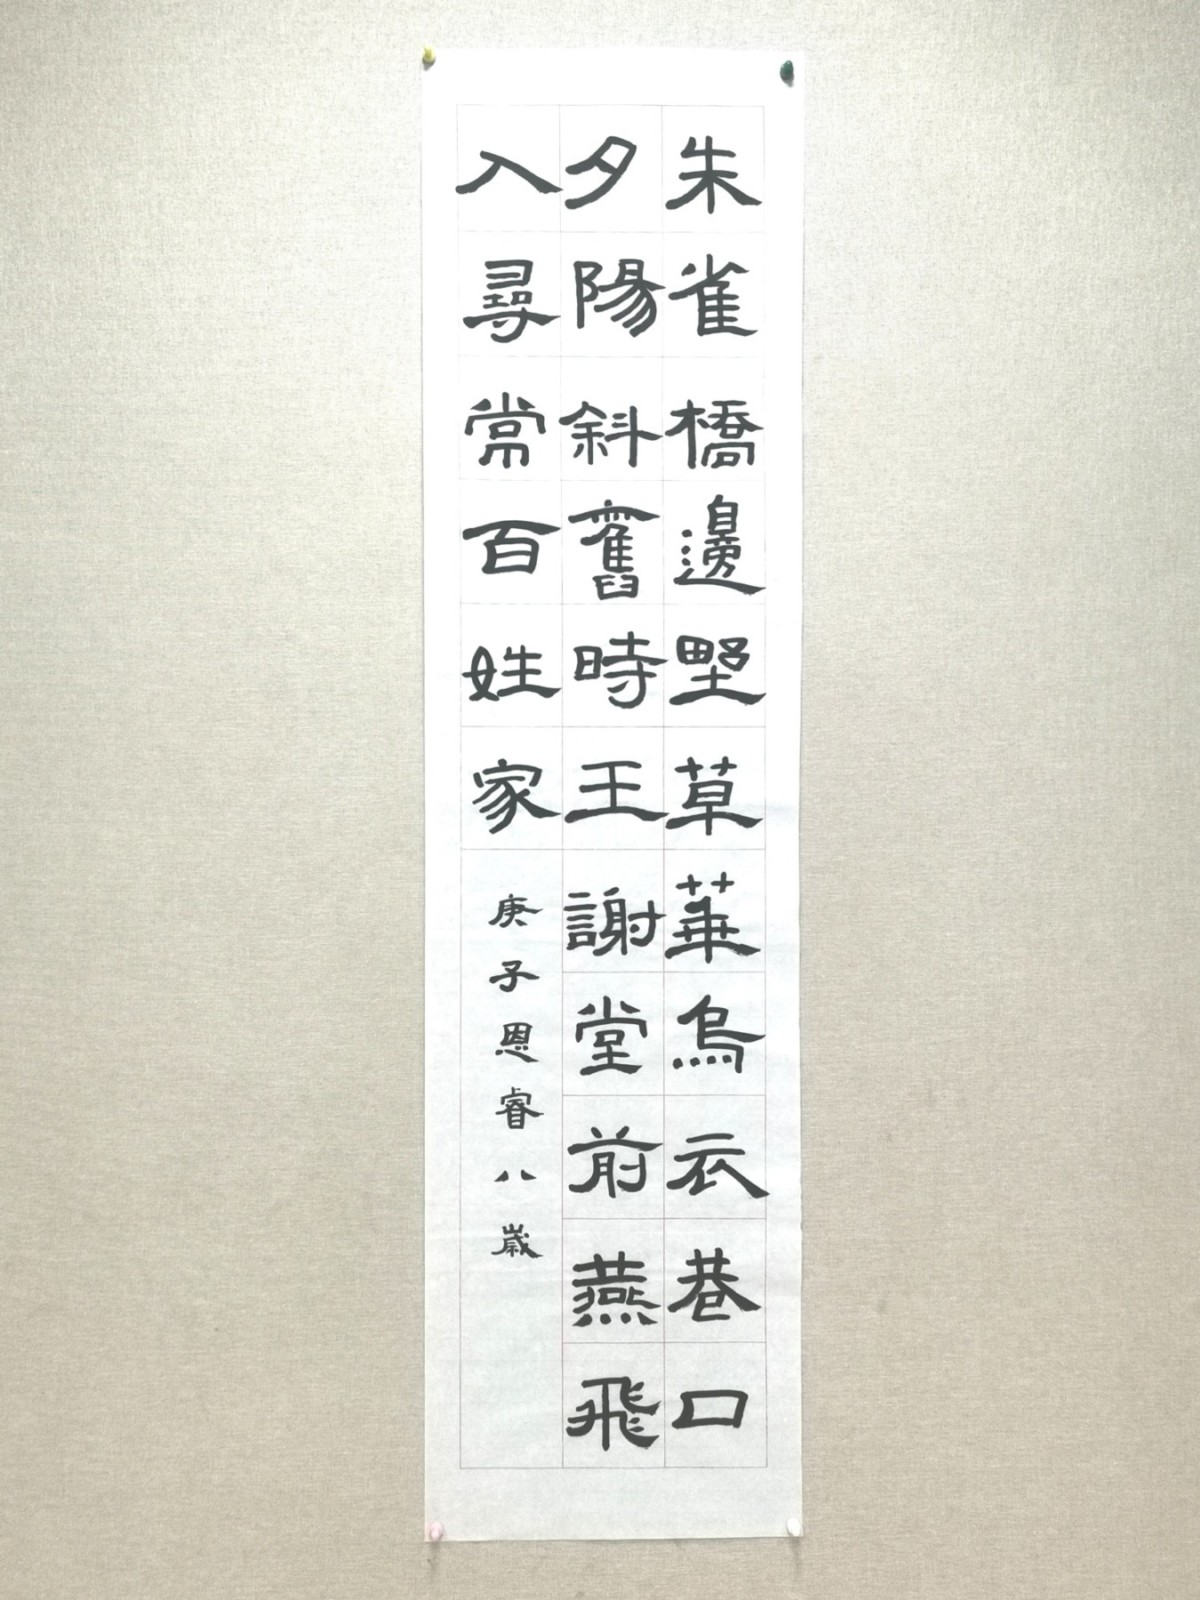 朱雀橋邊野草華烏衣巷口
夕陽斜舊時王謝堂前燕飛
入尋常百姓家
庚子恩睿八歲